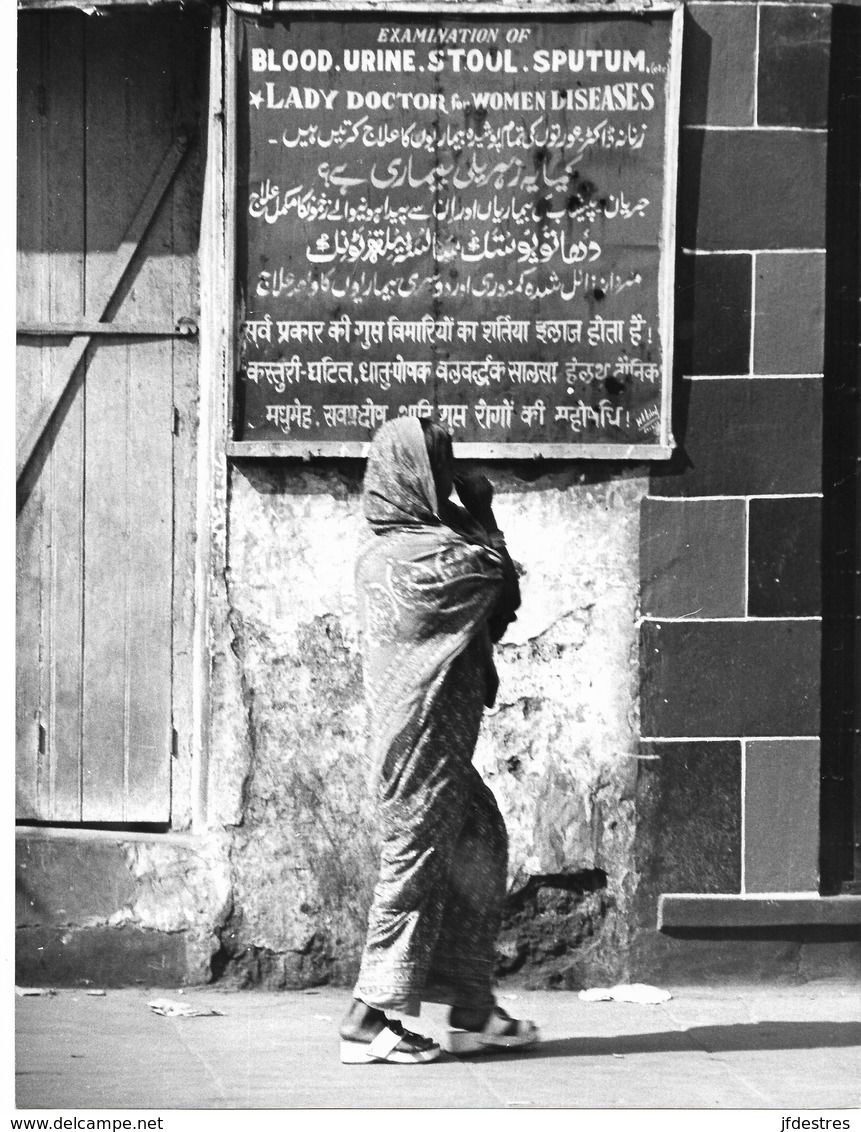 EXAMINATION OF
BLOOD. URINE. STOOL. SPUTUM. (etc)
★LADY DOCTOR for WOMEN DISEASES
زنانہ ڈاکٹر عورتوں کی تمام پوشیدہ بیماریوں کا علاج کرتیں ہیں -
کیا یہ زہریلی بیماری ہے؟
جریان، پیشاب کی بیماریاں اور ان سے پیدا ہونیوالے زخموں کا مکمل علاج
مردانہ زائل شدہ کمزوری اور دوسری بیماریوں کا واحد علاج
सर्व प्रकार की गुप्त बिमारियों का शर्तिया इलाज होता हैं!
कस्तुरी-घटित, धातु-पोषक बलवर्द्धक सालसा हेल्थ टौनिक
मधुमेह, स्वप्नदोष आदि गुप्त रोगों की महोषधि!
www.delcampe.net
jfdestres